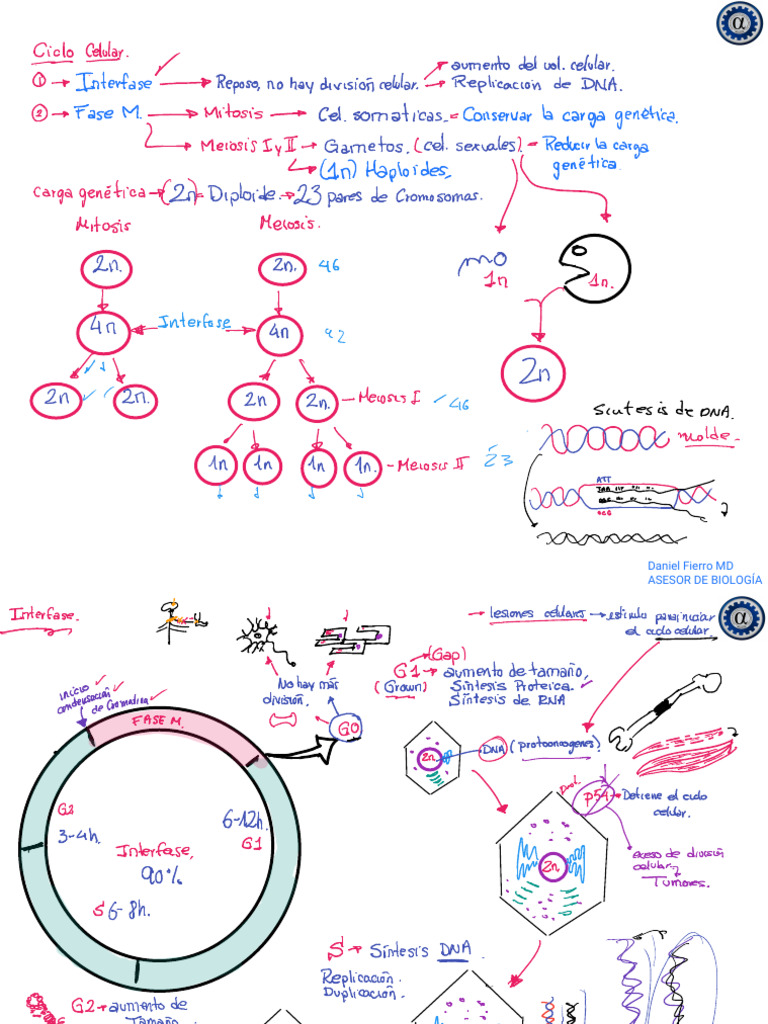 Ciclo Celular.
① → Interfase → Reposo, no hay división celular. → aumento del vol. celular.
→ Replicación de DNA.
② → Fase M. → Mitosis → Cel. somaticas. = Conservar la carga genética.
→ Meiosis I y II → Gametos. (cel. sexuales) = Reducir la carga genética.
→ (1n) Haploides,
Carga genética → (2n) = Diploide. → 23 pares de Cromosomas.
Mitosis
Meiosis.
2n.
2n.
46
1n
1n.
4n
Interfase
4n
92
2n
2n
2n.
2n
2n.
Meiosis I
46
1n
1n
1n
1n.
Meiosis II
23
Síntesis de DNA.
molde.
ATT
Daniel Fierro MD
ASESOR DE BIOLOGÍA
α
Interfase.
→ lesiones celulares → estímulo para iniciar
el ciclo celular
α
(Gap)
G1 → aumento de tamaño,
(Grown) Síntesis Proteica.
Síntesis de RNA
No hay más
división.
G0
inicio
condensación
de Cromatina
FASE M.
2n
DNA (protooncogenes)
Prot.
p54 → Detiene el ciclo
celular.
exceso de división
celular
Tumores.
2n
G2
3-4h.
6-12h.
G1
Interfase,
90%
S 6-8h.
S → Síntesis DNA
Replicación.
Duplicación.
G2 → aumento de
Tamaño